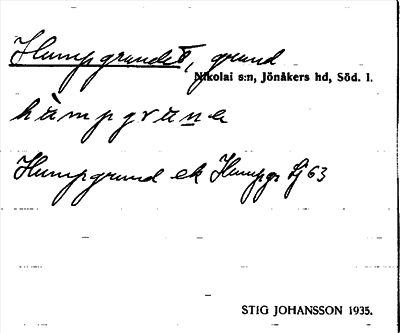 Humpgrundet, grund
Nikolai s:n, Jönåkers hd, Söd. l.
Humpgrund ek Humpgr Sj 63
STIG JOHANSSON 1935.